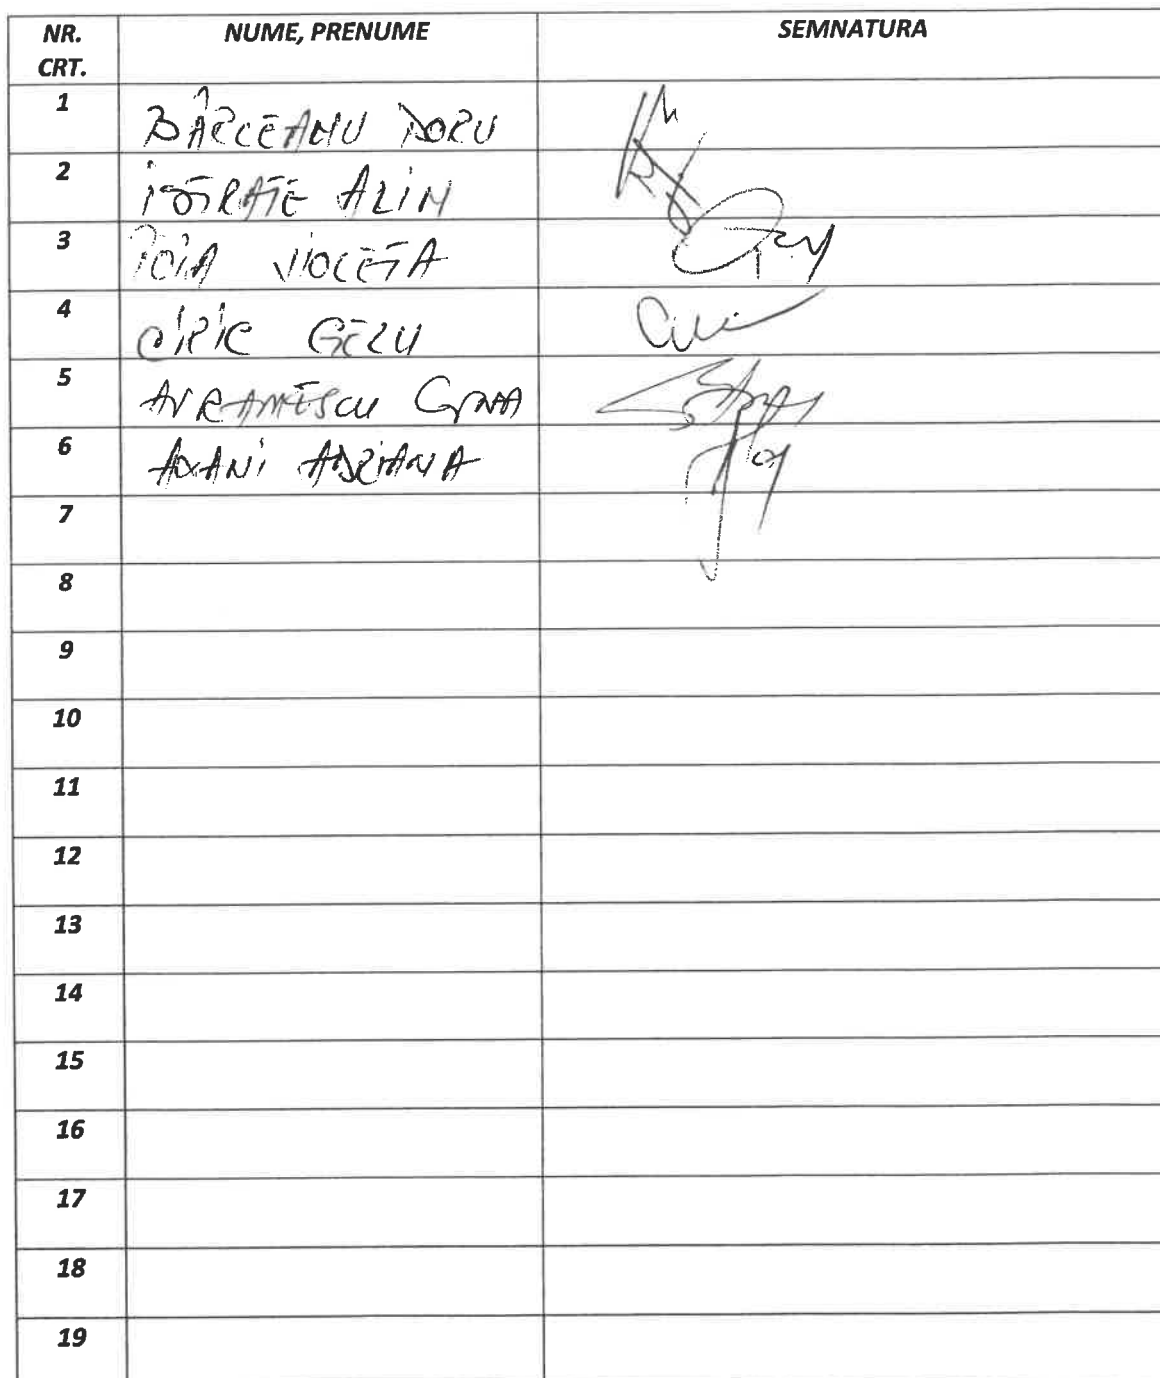 NR. CRT. NUME, PRENUME SEMNATURA
1 BÂRCEANU DORU
2 ISTRATE ALIN
3 VIOLETA
4 CIRIC GELU
5 AVRAMESCU GINA
6 AXANI ADRIANA
7
8
9
10
11
12
13
14
15
16
17
18
19